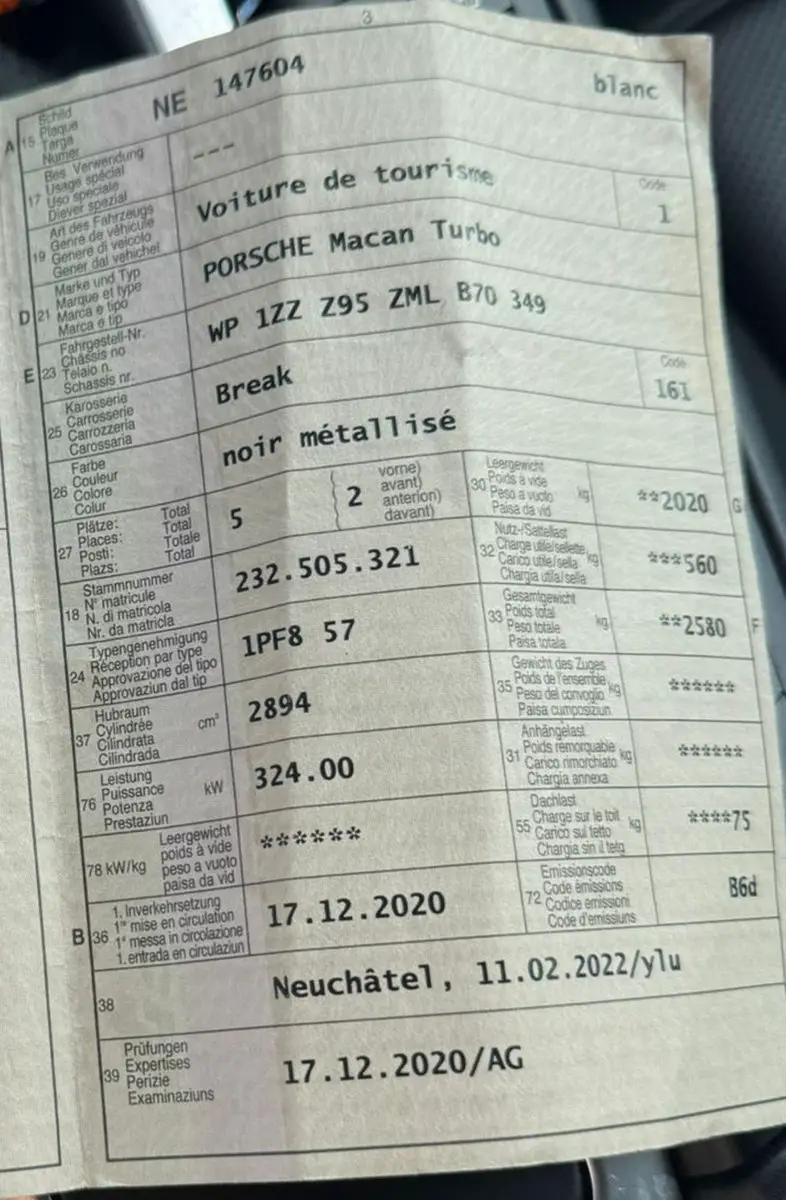 3
A 15 Schild Plaque Targa Numer NE 147604 blanc
17 Bes. Verwendung Usage spécial Uso speciale Diever spezial ---
19 Art des Fahrzeugs Genre de véhicule Genere di veicolo Gener dal vehichel Voiture de tourisme Code 1
D 21 Marke und Typ Marque et type Marca e tipo Marca e tip PORSCHE Macan Turbo
E 23 Fahrgestell-Nr. Châssis no Telaio n. Schassis nr. WP 1ZZ Z95 ZML B70 349
25 Karosserie Carrosserie Carrozzeria Carossaria Break Code 161
26 Farbe Couleur Colore Colur noir métallisé
27 Plätze: Total Places: Total Posti: Totale Plazs: Total 5 2 vorne) avant) anteriori) davant)
30 Leergewicht Poids à vide Peso a vuoto Paisa da vid kg **2020 G
18 Stammnummer N° matricule N. di matricola Nr. da matricla 232.505.321
32 Nutz-/Sattellast Charge utile/sellette Carico utile/sella Chargia utila/sella kg ***560
24 Typengenehmigung Réception par type Approvazione del tipo Approvaziun dal tip 1PF8 57
33 Gesamtgewicht Poids total Peso totale Paisa totala kg **2580 F
37 Hubraum Cylindrée Cilindrata Cilindrada cm³ 2894
35 Gewicht des Zuges Poids de l'ensemble Peso del convoglio Paisa cumposiziun kg ******
76 Leistung Puissance Potenza Prestaziun kW 324.00
31 Anhängelast Poids remorquable Carico rimorchiato Chargia annexa kg ******
78 kW/kg Leergewicht poids à vide peso a vuoto paisa da vid ******
55 Dachlast Charge sur le toit Carico sul tetto Chargia sin il tetg kg ****75
B 36 1. Inverkehrsetzung 1re mise en circulation 1a messa in circolazione 1. entrada en circulaziun 17.12.2020
72 Emissionscode Code émissions Codice emissioni Code d'emissiuns B6d
38 Neuchâtel, 11.02.2022/ylu
39 Prüfungen Expertises Perizie Examinaziuns 17.12.2020/AG